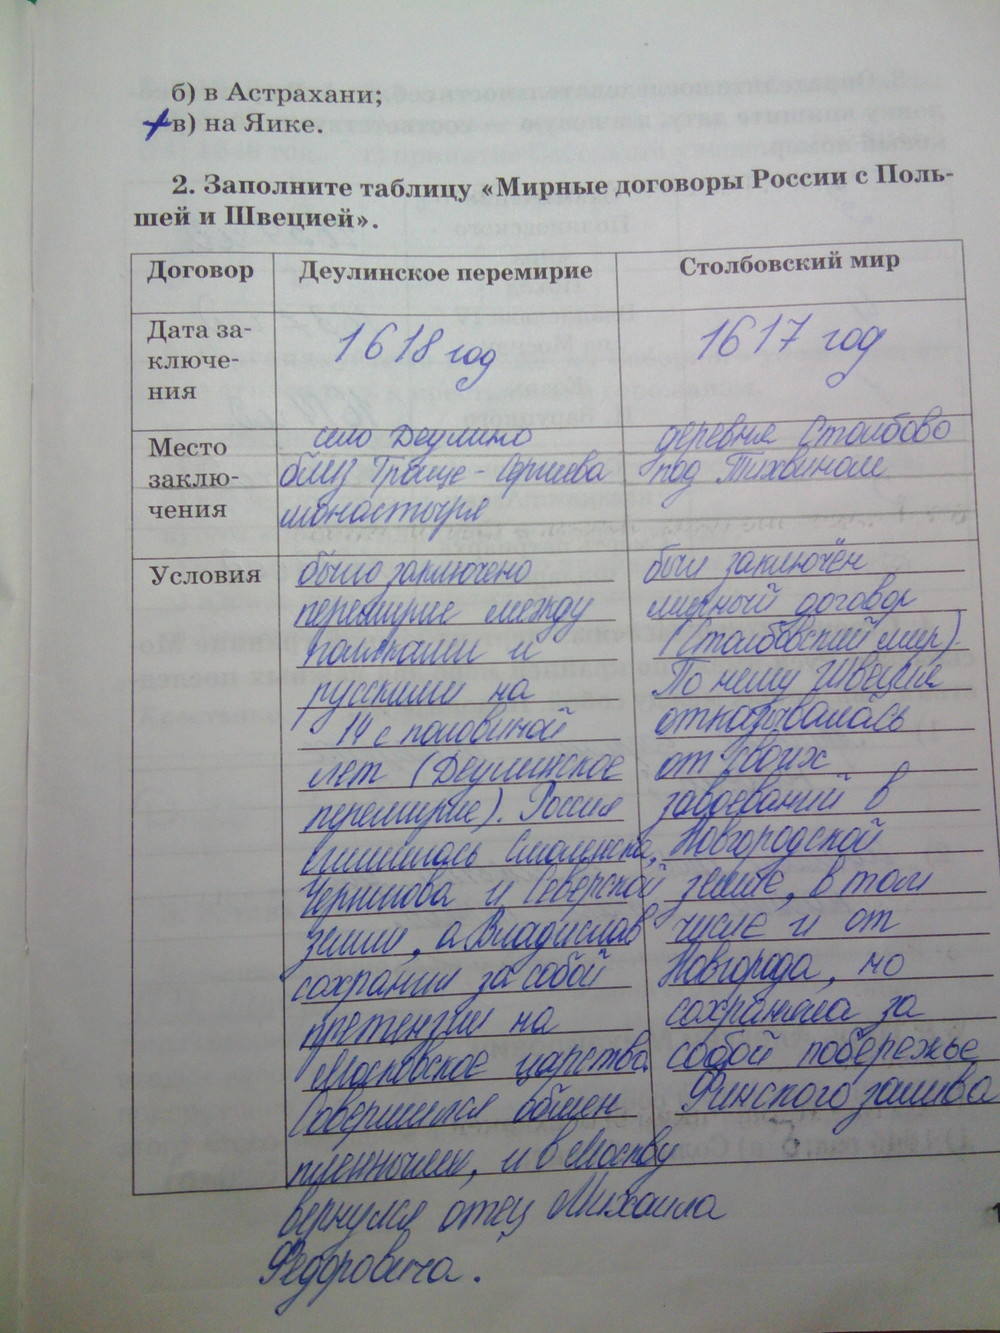 б) в Астрахани;
в) на Яике.
2. Заполните таблицу «Мирные договоры России с Поль-
шей и Швецией».
Договор
Деулинское перемирие
Столбовский мир
Дата за-
ключе-
ния
1618 год
1617 год
Место
заклю-
чения
село Деулино
близ Троице-Сергиева
монастыря
деревня Столбово
под Тихвином
Условия
было заключено
перемирие между
поляками и
русскими на
14 с половиной
лет (Деулинское
перемирие). Россия
лишилась Смоленска,
Чернигова и Северской
земли, а Владислав
сохранил за собой
претензии на
Московское царство.
Совершился обмен
пленными, и в Москву
вернулся отец Михаила
Федоровича.
был заключён
мирный договор
(Столбовский мир).
По нему Швеция
отказывалась
от своих
завоеваний в
Новгородской
земле, в том
числе и от
Новгорода, но
сохраняла за
собой побережье
Финского залива